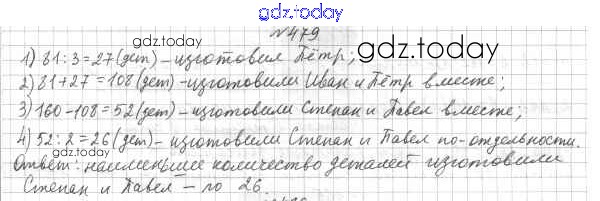 gdz.today
№479
gdz.today
gdz.today
1) 81:3=27(дет)-изготовил Пётр;
2) 81+27=108(дет)-изготовили Иван и Пётр вместе;
3) 160-108=52(дет)-изготовили Степан и Павел вместе;
4) 52:2=26(дет)-изготовили Степан и Павел по-отдельности.
gdz.today
Ответ: наименьшее количество деталей изготовили
Степан и Павел - по 26.
gdz.today